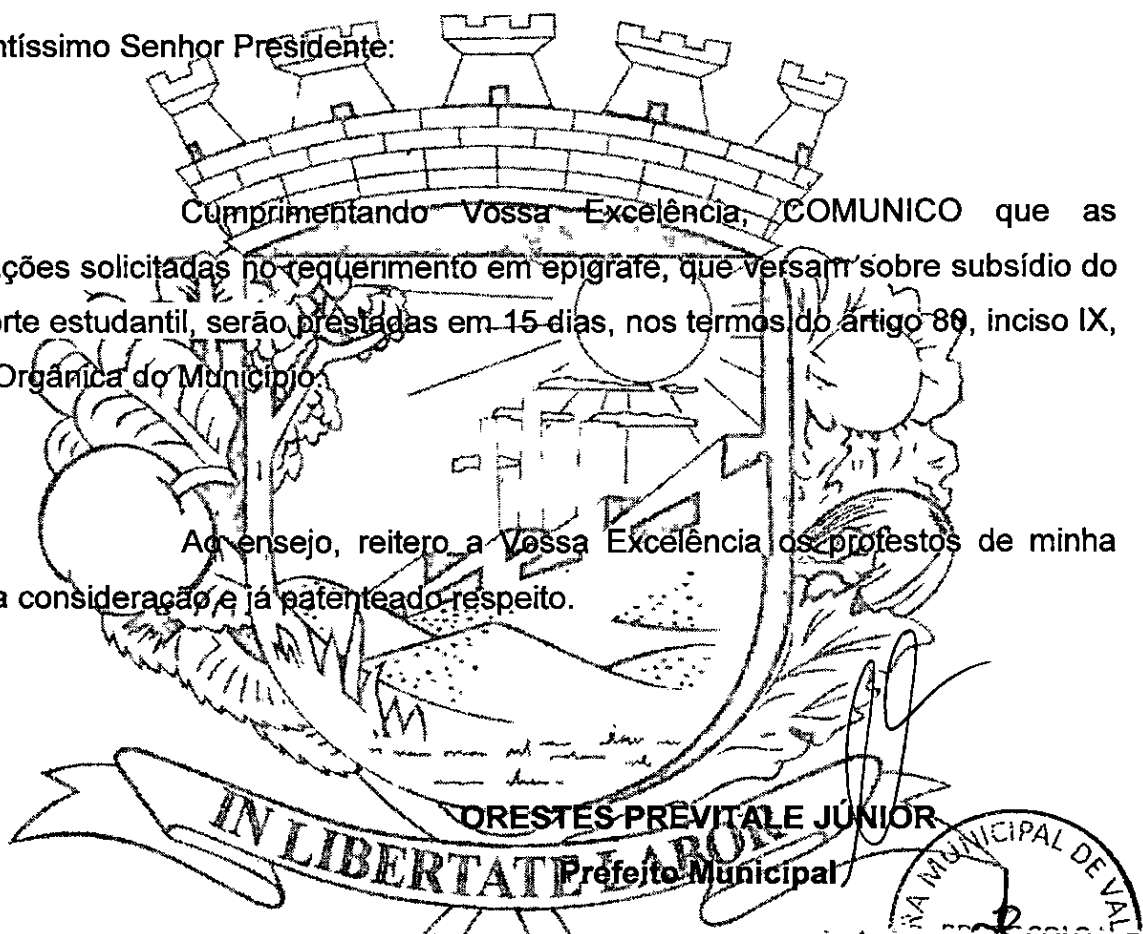 ntíssimo Senhor Presidente:
Cumprimentando Vossa Excelência, COMUNICO que as
ções solicitadas no requerimento em epígrafe, que versam sobre subsídio do
orte estudantil, serão prestadas em 15 dias, nos termos do artigo 80, inciso IX,
Orgânica do Município.
Ao ensejo, reitero a Vossa Excelência os protestos de minha
a consideração e já patenteado respeito.
ORESTES PREVITALE JÚNIOR
Prefeito Municipal
IN LIBERTATE LABOR
RA MUNICIPAL DE VAL